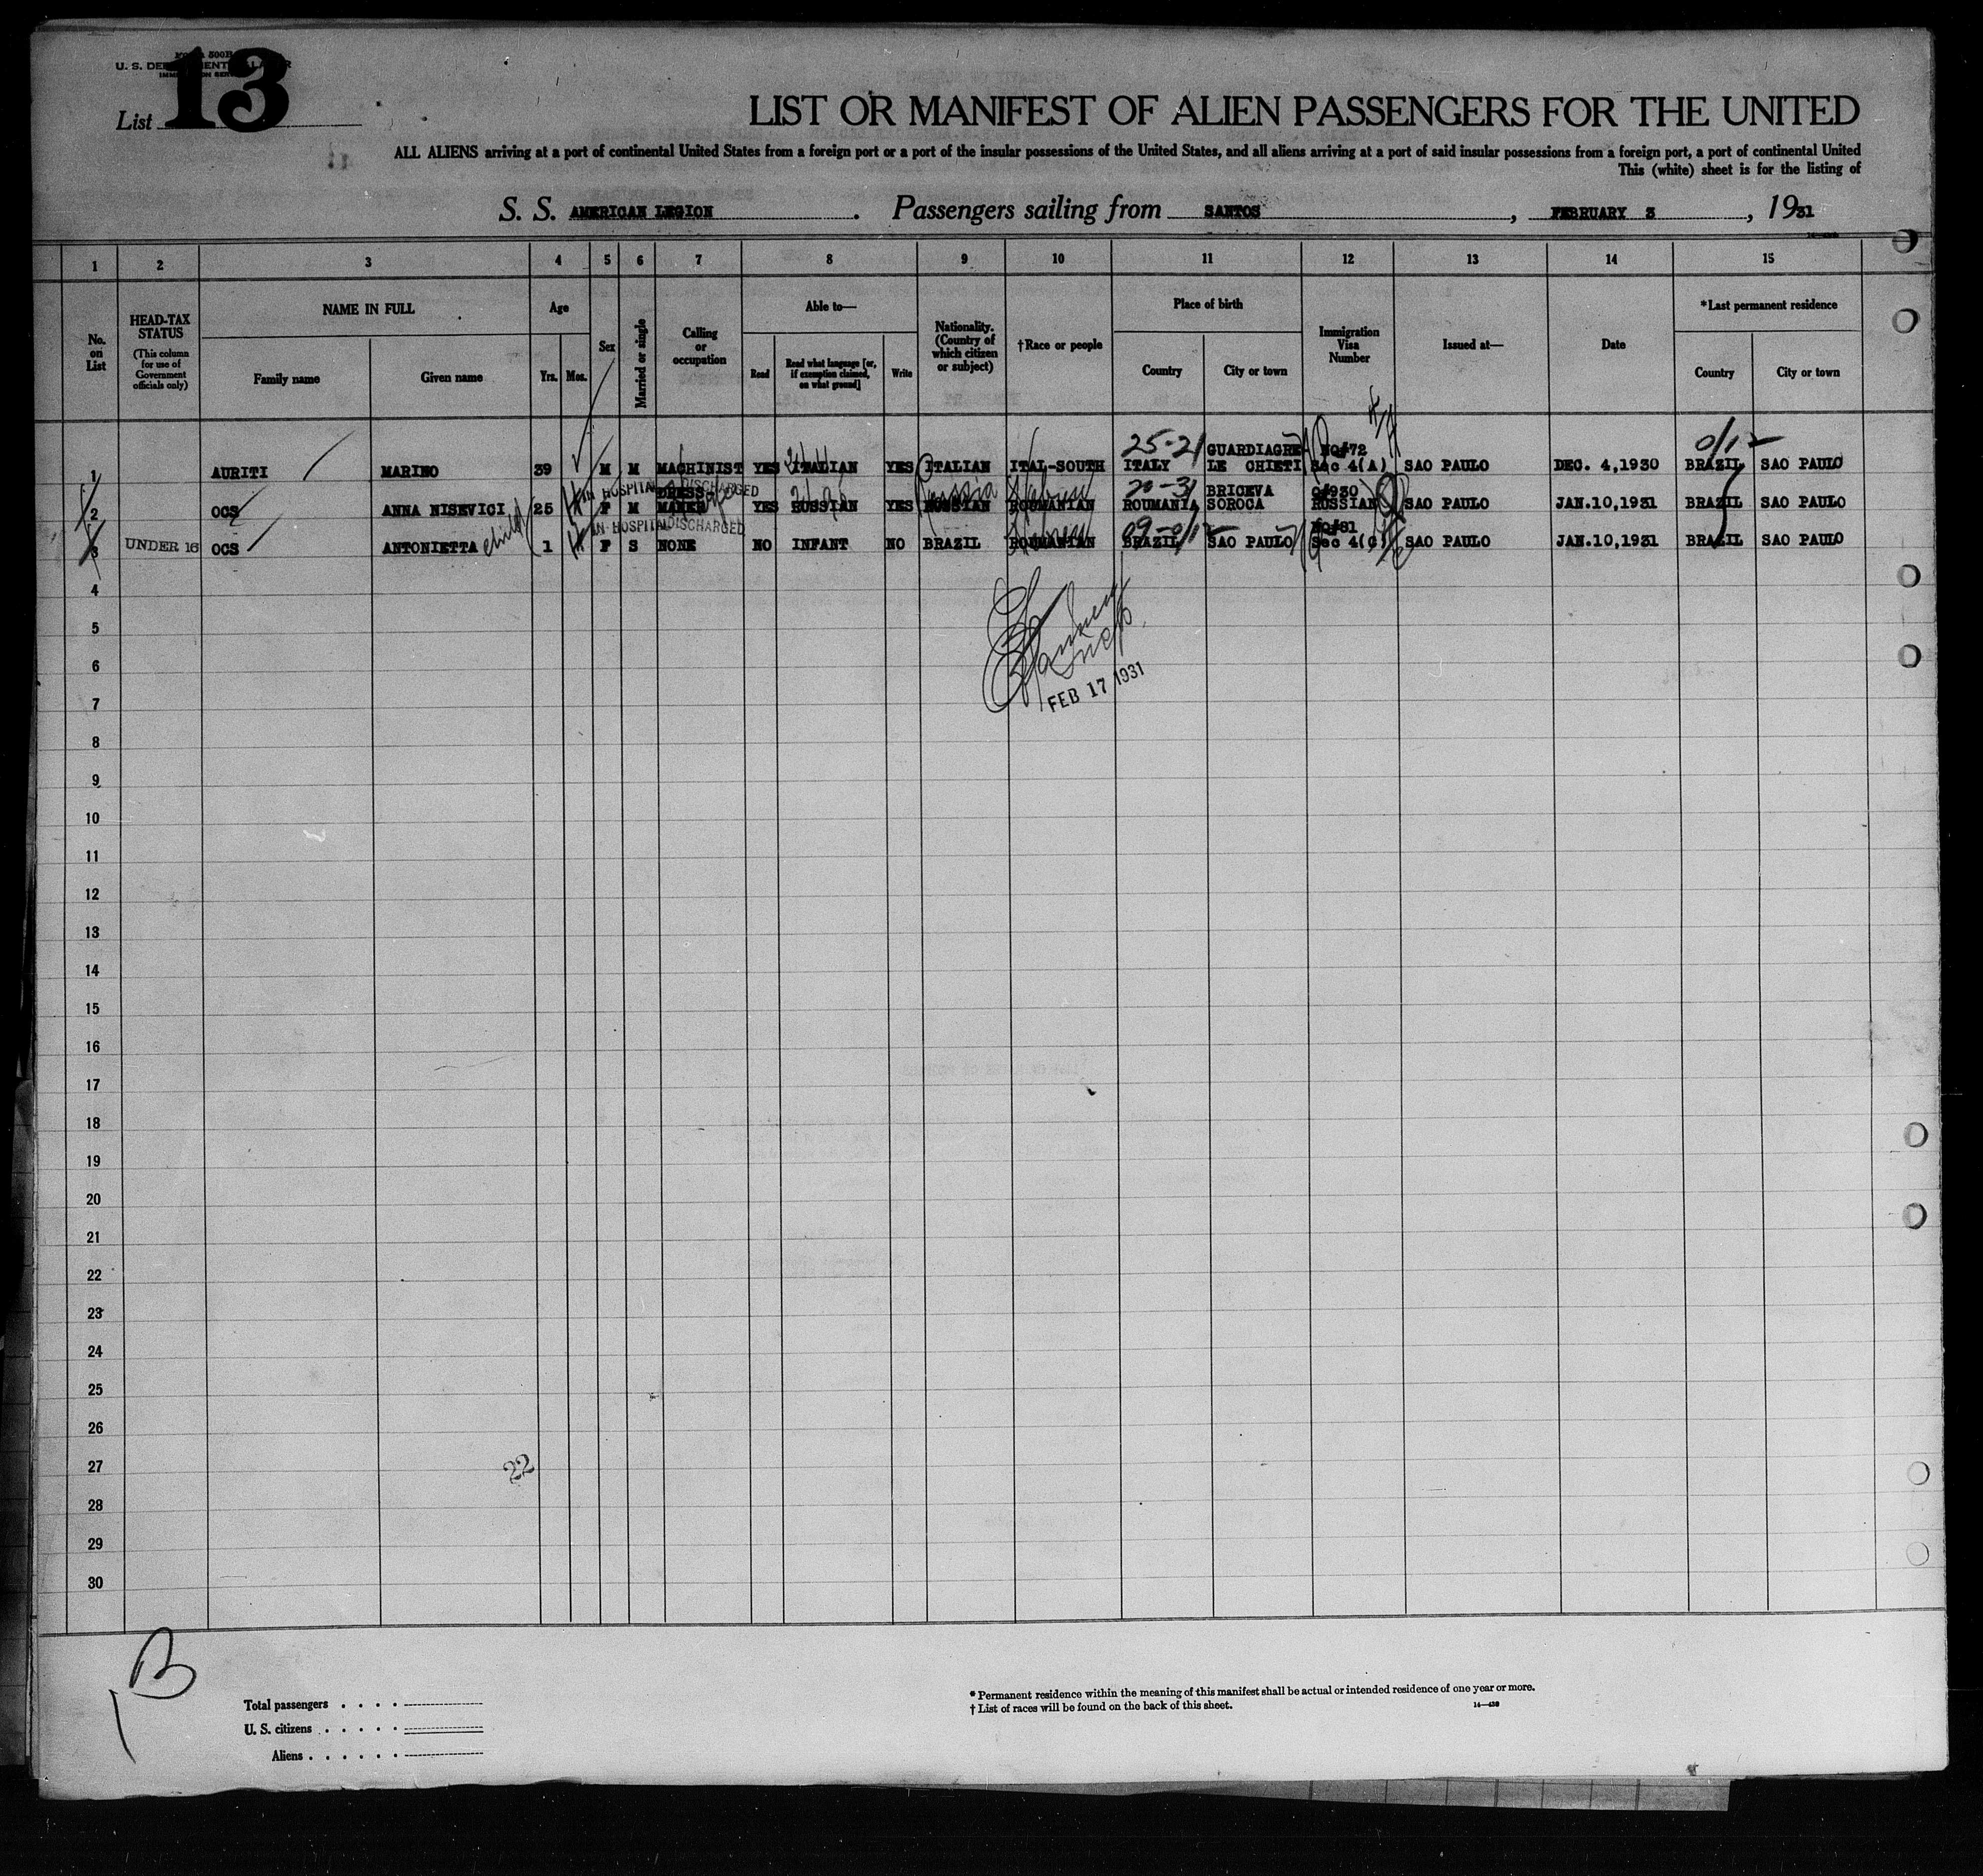 FORM 500B
U. S. DEPARTMENT OF LABOR
IMMIGRATION SERVICE
List 13
LIST OR MANIFEST OF ALIEN PASSENGERS FOR THE UNITED
ALL ALIENS arriving at a port of continental United States from a foreign port or a port of the insular possessions of the United States, and all aliens arriving at a port of said insular possessions from a foreign port, a port of continental United
This (white) sheet is for the listing of
S. S. AMERICAN LEGION . Passengers sailing from SANTOS , FEBRUARY 3 , 1931
1 2 3 4 5 6 7 8 9 10 11 12 13 14 15
No. on List
HEAD-TAX STATUS
(This column for use of Government officials only)
NAME IN FULL
Family name Given name
Age
Yrs. Mos.
Sex
Married or single
Calling or occupation
Able to—
Read
Read what language [or, if exemption claimed, on what ground]
Write
Nationality. (Country of which citizen or subject)
†Race or people
Place of birth
Country City or town
Immigration Visa Number
Issued at—
Date
*Last permanent residence
Country City or town
25-21 GUARDIAGRE NQ#72 0/1
1 AURITI MARINO 39 M M MACHINIST YES ITALIAN YES ITALIAN ITAL-SOUTH ITALY LE CHIETI Sec 4(A) SAO PAULO DEC. 4,1930 BRAZIL SAO PAULO
IN HOSPITAL DISCHARGED
DRESS Russia Hebrew 20-31 BRICEVA Q#930
2 OCS ANNA NISEVICI 25 F M MAKER YES RUSSIAN YES RUSSIAN ROUMANIAN ROUMANIA SOROCA RUSSIAN SAO PAULO JAN.10,1931 BRAZIL SAO PAULO
IN HOSPITAL DISCHARGED
Hebrew 09-0/1 NQ#81
3 UNDER 16 OCS ANTONIETTA child 1 F S NONE NO INFANT NO BRAZIL ROUMANIAN BRAZIL SAO PAULO Sec 4(C) SAO PAULO JAN.10,1931 BRAZIL SAO PAULO
4
5
6
7
FEB 17 1931
8
9
10
11
12
13
14
15
16
17
18
19
20
21
22
23
24
25
26
27
22
28
29
30
B
Total passengers . . . .
U. S. citizens . . . . .
Aliens . . . . . .
* Permanent residence within the meaning of this manifest shall be actual or intended residence of one year or more.
† List of races will be found on the back of this sheet.
14—438